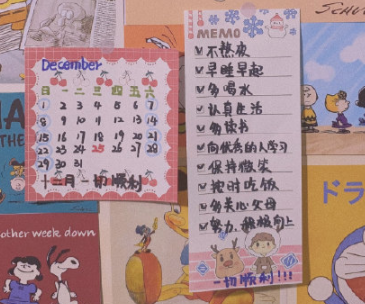 December
日 一 二 三 四 五 六
1 2 3 4 5 6 7
8 9 10 11 12 13 14
15 16 17 18 19 20 21
22 23 24 25 26 27 28
29 30 31
十二月 一切顺利
MEMO
不熬夜
早睡早起
多喝水
认真生活
多读书
向优秀的人学习
保持微笑
按时吃饭
多关心父母
努力 积极向上
一切顺利!!!
THE
other week down
ドラ